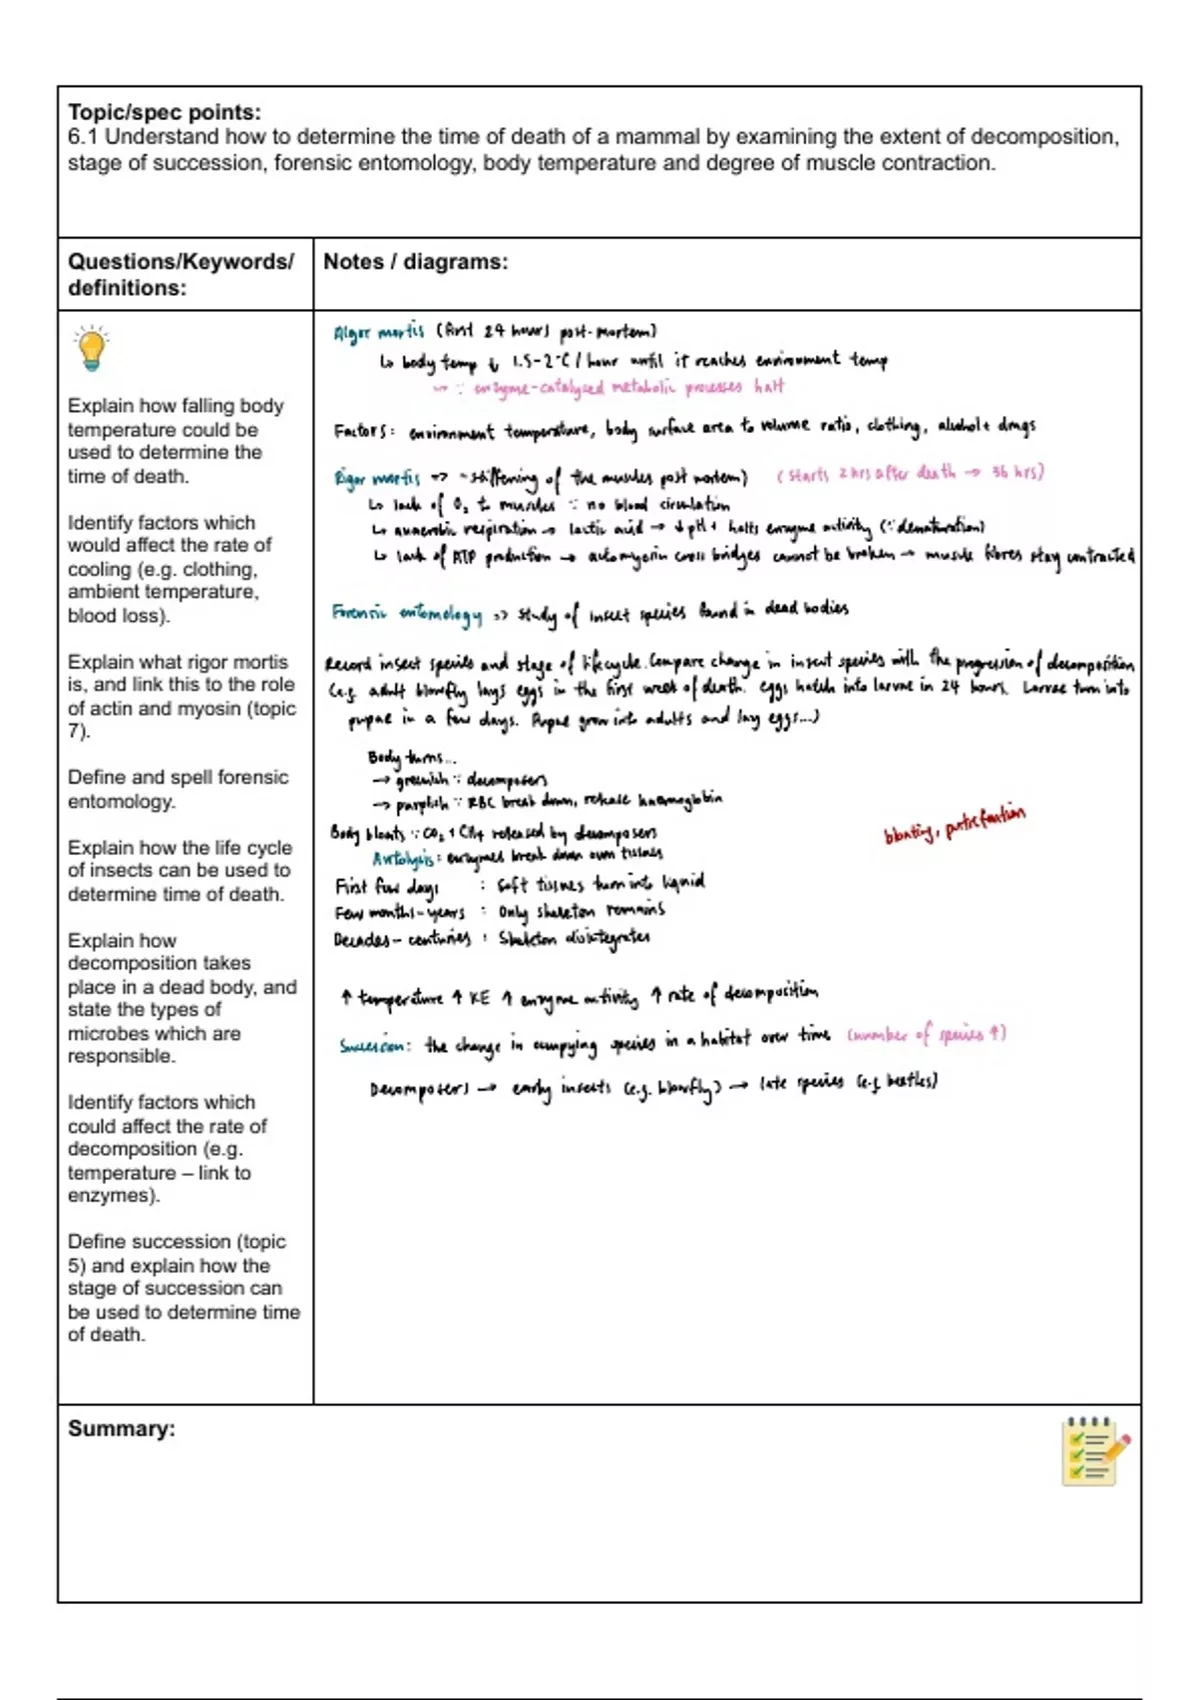 Topic/spec points:
6.1 Understand how to determine the time of death of a mammal by examining the extent of decomposition,
stage of succession, forensic entomology, body temperature and degree of muscle contraction.
Questions/Keywords/
definitions:
Notes / diagrams:
Explain how falling body
temperature could be
used to determine the
time of death.
Identify factors which
would affect the rate of
cooling (e.g. clothing,
ambient temperature,
blood loss).
Explain what rigor mortis
is, and link this to the role
of actin and myosin (topic
7).
Define and spell forensic
entomology.
Explain how the life cycle
of insects can be used to
determine time of death.
Explain how
decomposition takes
place in a dead body, and
state the types of
microbes which are
responsible.
Identify factors which
could affect the rate of
decomposition (e.g.
temperature – link to
enzymes).
Define succession (topic
5) and explain how the
stage of succession can
be used to determine time
of death.
Algor mortis (first 24 hours post-mortem)
↳ body temp ↓ 1.5-2°C/hour until it reaches environment temp
↳ ∵ enzyme-catalysed metabolic processes halt
Factors: environment temperature, body surface area to volume ratio, clothing, alcohol + drugs
Rigor mortis => stiffening of the muscles post mortem) (starts 2 hrs after death → 36 hrs)
↳ lack of O₂ to muscles ∵ no blood circulation
↳ anaerobic respiration → lactic acid → ↓ pH + halts enzyme activity (∵ denaturation)
↳ lack of ATP production → actomyosin cross bridges cannot be broken → muscle fibres stay contracted
Forensic entomology => study of insect species found in dead bodies
Record insect species and stage of lifecycle. Compare change in insect species with the progression of decomposition
(e.g. adult blowfly lays eggs in the first week of death. eggs hatch into larvae in 24 hours. Larvae turn into
pupae in a few days. Pupae grow into adults and lay eggs...)
Body turns...
→ greenish ∵ decomposers
→ purplish ∵ RBC break down, release haemoglobin
Body bloats ∵ CO₂ + CH₄ released by decomposers
bloating, putrefaction
Autolysis: enzymes break down own tissues
First few days : Soft tissues turn into liquid
Few months-years : Only skeleton remains
Decades-centuries : Skeleton disintegrates
↑ temperature ↑ KE ↑ enzyme activity ↑ rate of decomposition
Succession: the change in occupying species in a habitat over time (number of species ↑)
Decomposers → early insects (e.g. blowfly) → late species (e.g. beetles)
Summary: